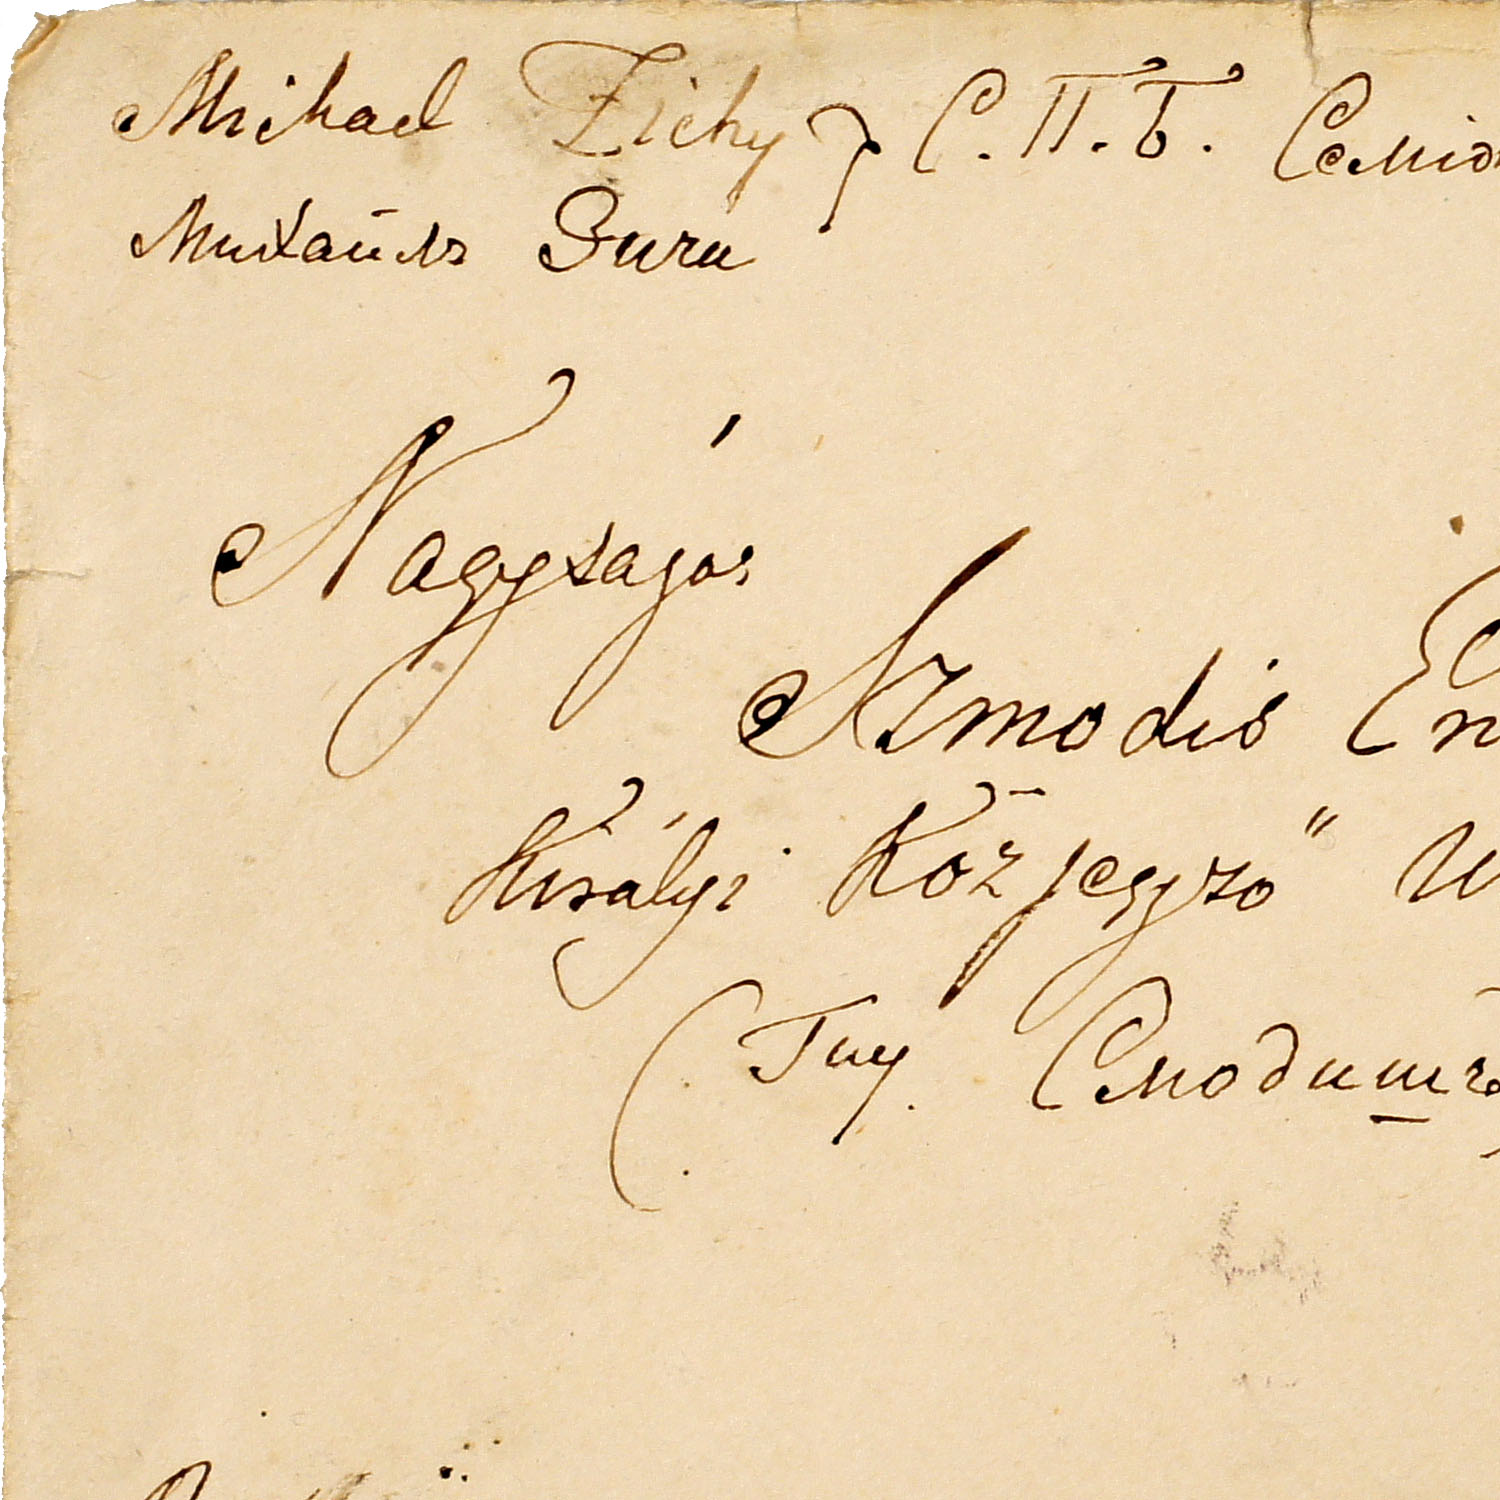 Mihael Zichy } С. П. Б.
Михаилъ Зичи
Nagyságos
Szmodis
Királyi Közjegyző
(Гну. Смодишъ